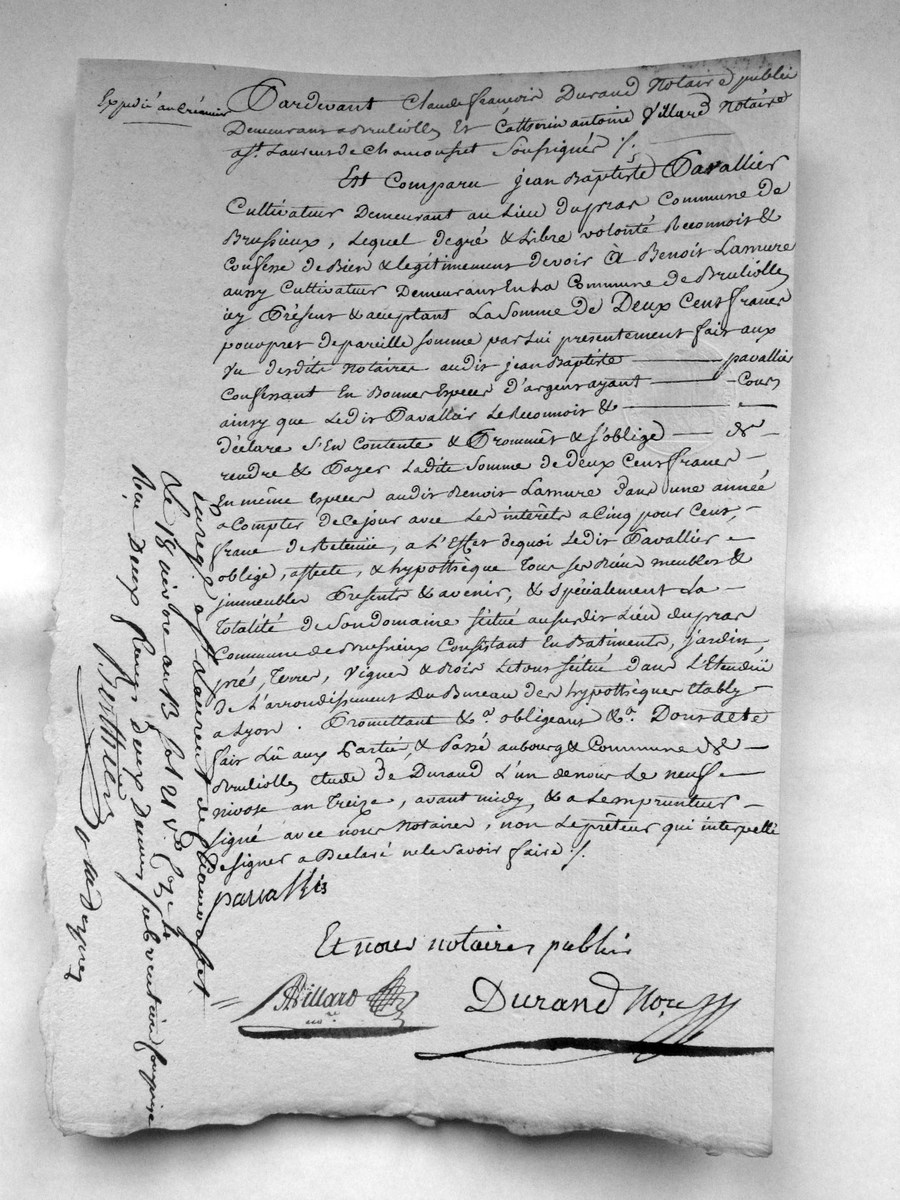 Expedié au Créancier
Pardevant Claude francois Durand Notaire public
Demeurant a Brullioles Et Catherin antoine Villard Notaire
a St. Laurent de Chamousset Soussignés /.
Est Comparu jean Baptiste Pavallier
Cultivateur Demeurant au Lieu Duprat Commune de
Brussieux, Lequel de gré & Libre volonté Reconnoit &
Confesse de Bien & legitimement devoir à Benoit Lamure
aussy Cultivateur Demeurant En La Commune de Brulliolles
icy Présent & acceptant La Somme de Deux Cent francs
pour pret de pareille Somme par Lui presentement fait aux
Vu desdits Notaires audit jean Baptiste — pavallier
Confessant En Bonnes Especes D'argent ayant — Cours
ainsy que Ledit Pavallier Le Reconnoit & —
déclare S'En Contente & Prommet & S'oblige — de —
rendre & Payer Ladite Somme de Deux Cent francs —
En même Especes audit Benoit Lamure Dans une année
a Compter de Ce jour avec Les interêts a Cinq pour Cent,
franc de Retenue, a L'Effet de quoi Ledit Pavallier —
oblige, affecte, & hypothèque Tous Ses Biens meubles &
immeubles Presents & avenir, & Spécialement La —
Totalité de Son domaine Situé au Susdit Lieu duprat
Commune de Brussieux Consistant En Batiments, Jardin,
prés, Terres, Vignes & Bois Le tout Situé dans L'Etenduë
de L'arrondissement du Bureau des hypothèques Etably —
a Lyon. Promettant &a. obligeant &a. Dont acte
fait Lû aux Parties, & Passé au bourg & Commune de —
Brulliolles Etude de Durand L'un de nous Le neuf —
nivose an Treize, avant midy, & a L'emprunteur —
Signé avec nous Notaires, non Le prêteur qui interpellé
de Signer a Déclaré ne le Savoir faire /.
pavallié
Et nous notaires publis
Villard nore
Durand Nore
Enregé a St Laurent de Chamousset
Le 18 nivose an 13 fol. 21 Vo. Case 4
Reçu Deux francs Deux Decimes Subvention Comprise
Berthier